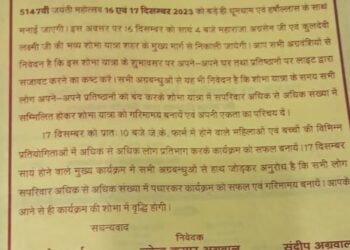 5147वीं जयंती महोत्सव 16 एवं 17 दिसम्बर 2023 को बड़े ही धूमधाम एवं हर्षोल्लास के साथ
मनाई जाएगी। इस अवसर पर 16 दिसम्बर को सायं 4 बजे महाराजा अग्रसेन जी एवं कुलदेवी
लक्ष्मी जी की भव्य शोभा यात्रा शहर के मुख्य मार्ग से निकाली जायेगी। आप सभी अग्रवंशियों से
निवेदन है कि इस शोभा यात्रा के शुभावसर पर अपने-अपने घर तथा प्रतिष्ठानों पर लाइट द्वारा
सजावट करने का कष्ट करें। सभी अग्रबन्धुओं से यह भी निवेदन है कि शोभा यात्रा के समय सभी
लोग अपने-अपने प्रतिष्ठानों को बंद करके शोभा यात्रा में सपरिवार अधिक से अधिक संख्या में
सम्मिलित होकर शोभा यात्रा को गरिमामय बनायें एवं अपनी एकता का परिचय दें।
17 दिसम्बर को प्रातः 10 बजे जे.के. फार्म में होने वाले महिलाओं एवं बच्चों की विभिन्न
प्रतियोगिताओं में अधिक से अधिक लोग प्रतिभाग करके कार्यक्रम को सफल बनायें। 17 दिसम्बर
सायं होने वाले मुख्य कार्यक्रम में सभी अग्रबन्धुओं से हाथ जोड़कर अनुरोध है कि सभी लोग
सपरिवार अधिक से अधिक संख्या में पधारकर कार्यक्रम को सफल एवं गरिमामय बनायें। आपके
आने से ही कार्यक्रम की शोभा में वृद्धि होगी।
सधन्यवाद
निवेदक
अग्रवाल संदीप अग्रवाल